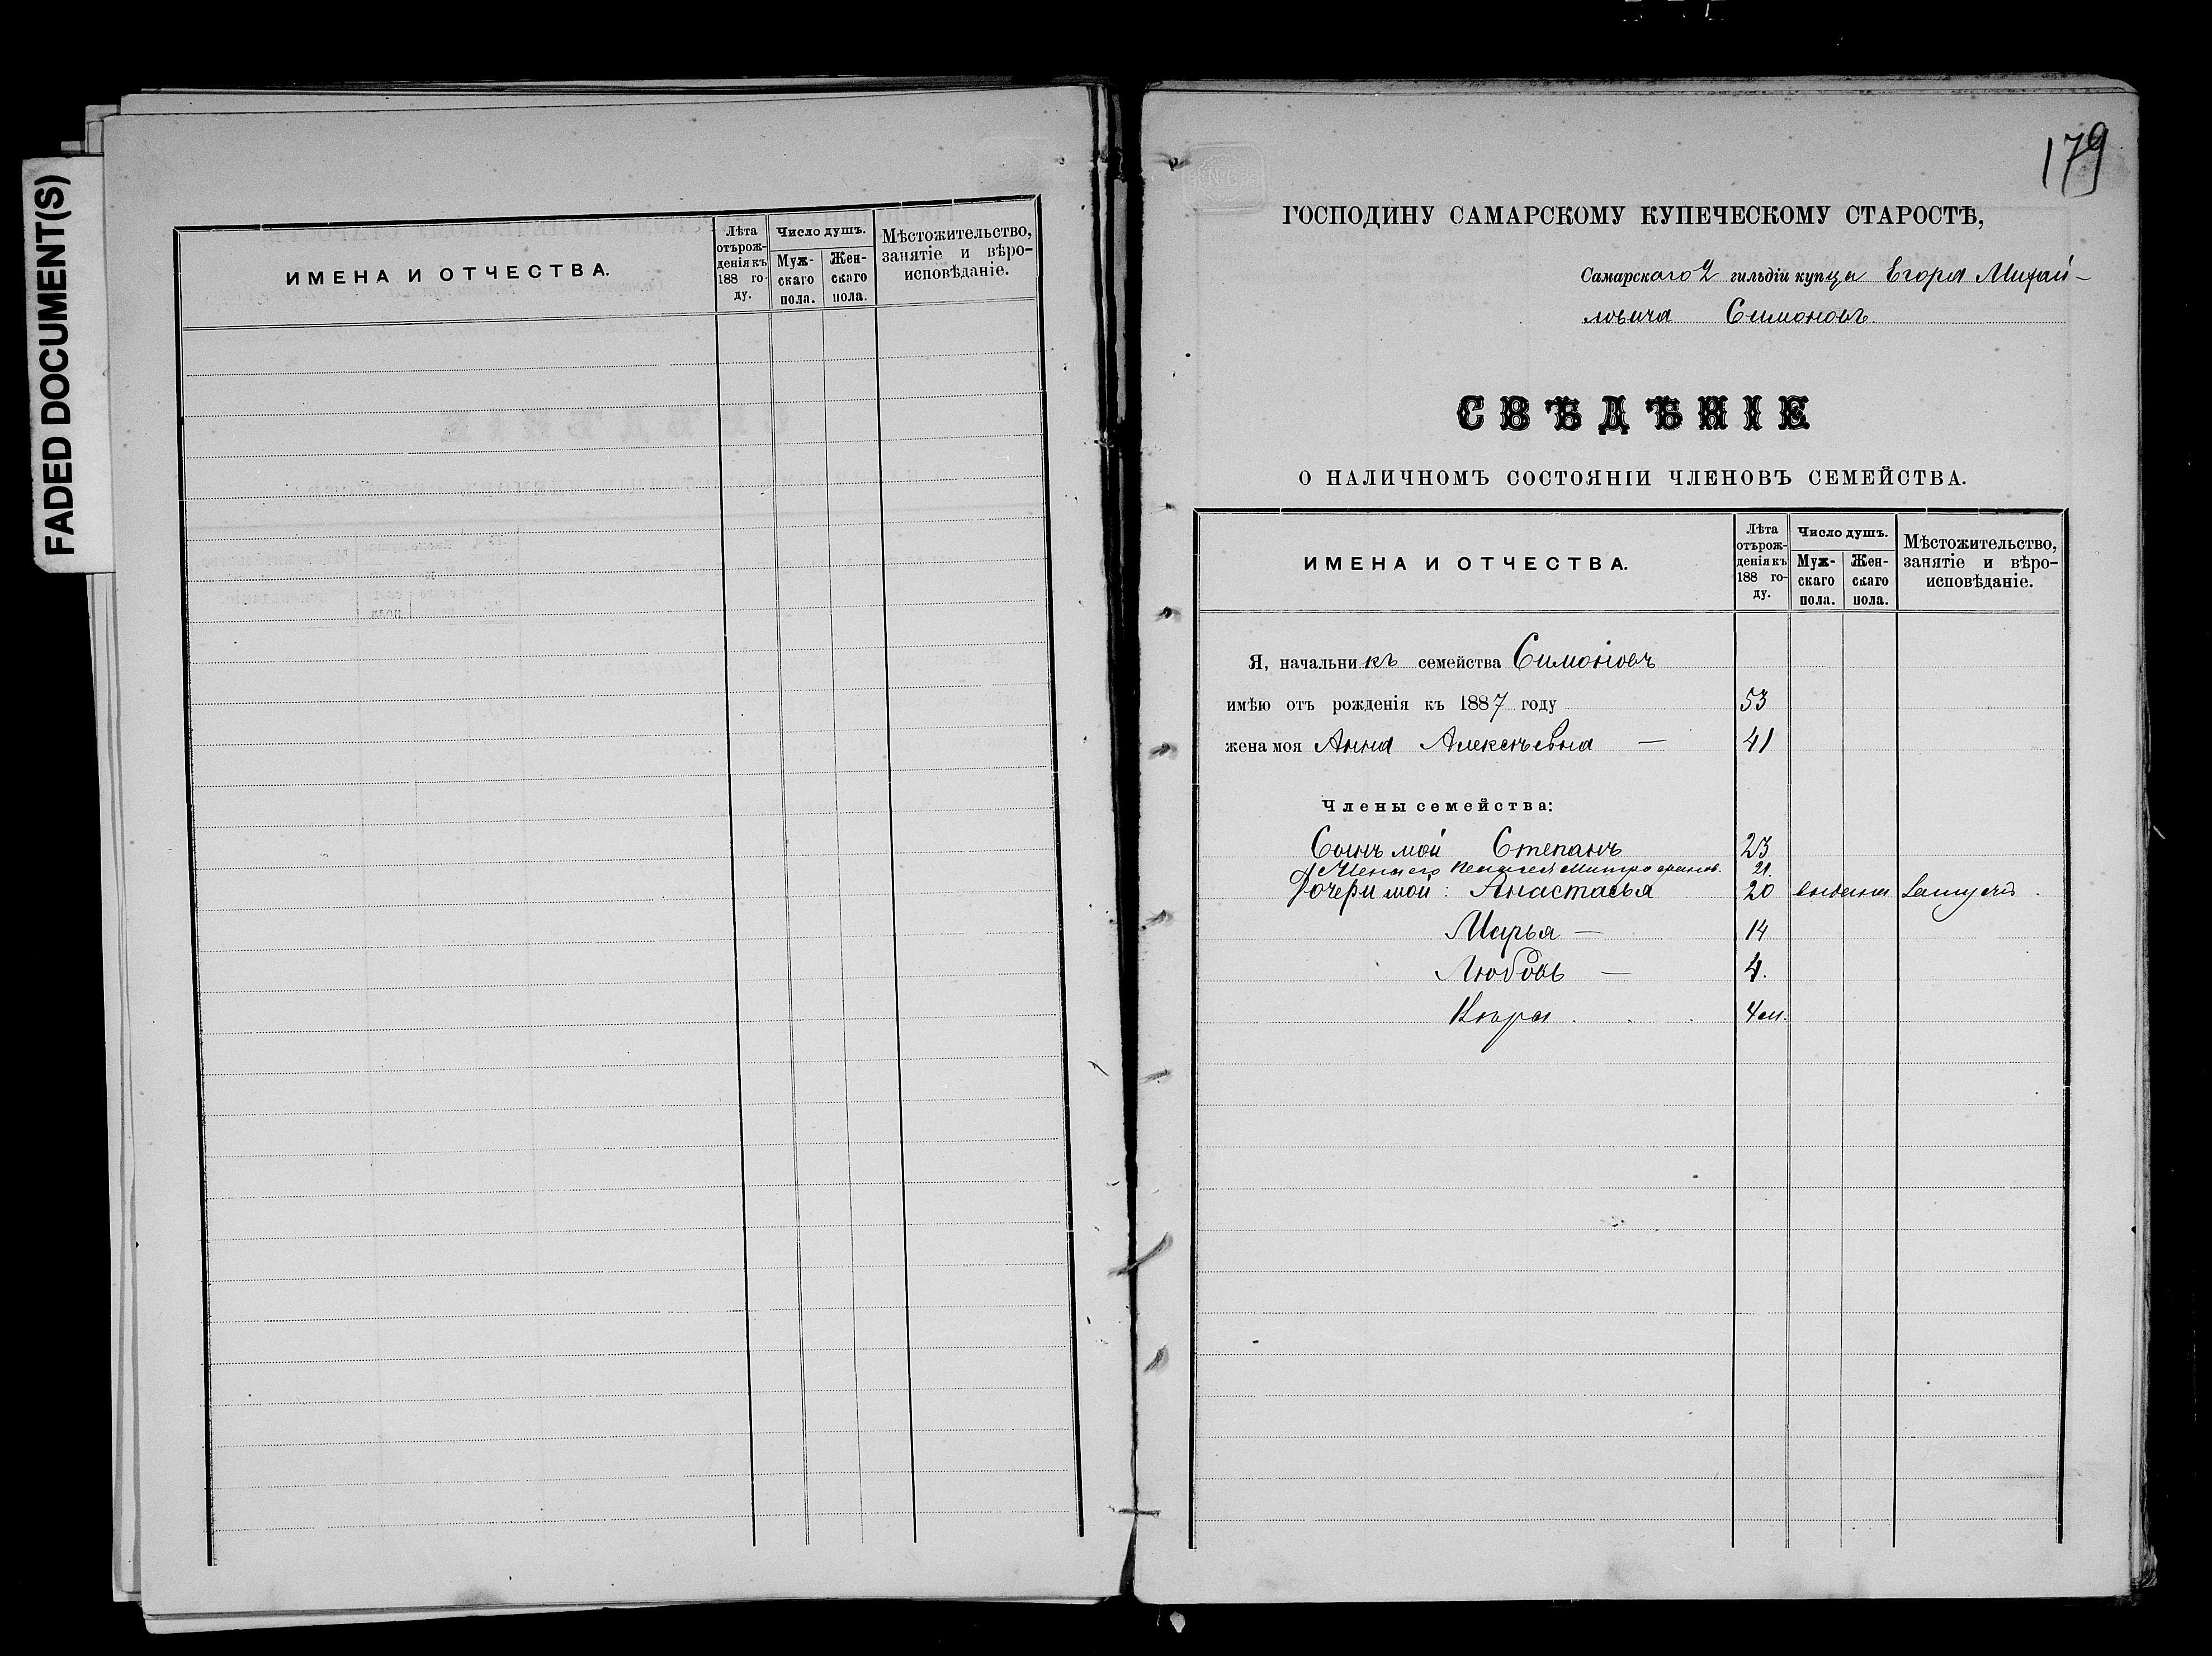 FADED DOCUMENT(S)
ИМЕНА И ОТЧЕСТВА.
Лѣта отърожденія къ 188 году.
Число душъ.
Мужскаго пола.
Женскаго пола.
Мѣстожительство, занятіе и вѣроисповѣданіе.
179
ГОСПОДИНУ САМАРСКОМУ КУПЕЧЕСКОМУ СТАРОСТѢ,
Самарскаго 2 гильдіи купца Егора Михай-
ловича Симоновъ
СВѢДѢНІЕ
О НАЛИЧНОМЪ СОСТОЯНІИ ЧЛЕНОВЪ СЕМЕЙСТВА.
ИМЕНА И ОТЧЕСТВА.
Лѣта отърожденія къ 188 году.
Число душъ.
Мужскаго пола.
Женскаго пола.
Мѣстожительство, занятіе и вѣроисповѣданіе.
Я, начальникъ семейства Симоновъ
имѣю отъ рожденія къ 1887 году 53
жена моя Анна Алексѣевна — 41
Члены семейства:
Сынъ мой Степанъ 23
Жена его 21.
Дочери мои: Анастасья 20 выдана
Марья — 14
Любовь — 4.
Вѣра 4 м.